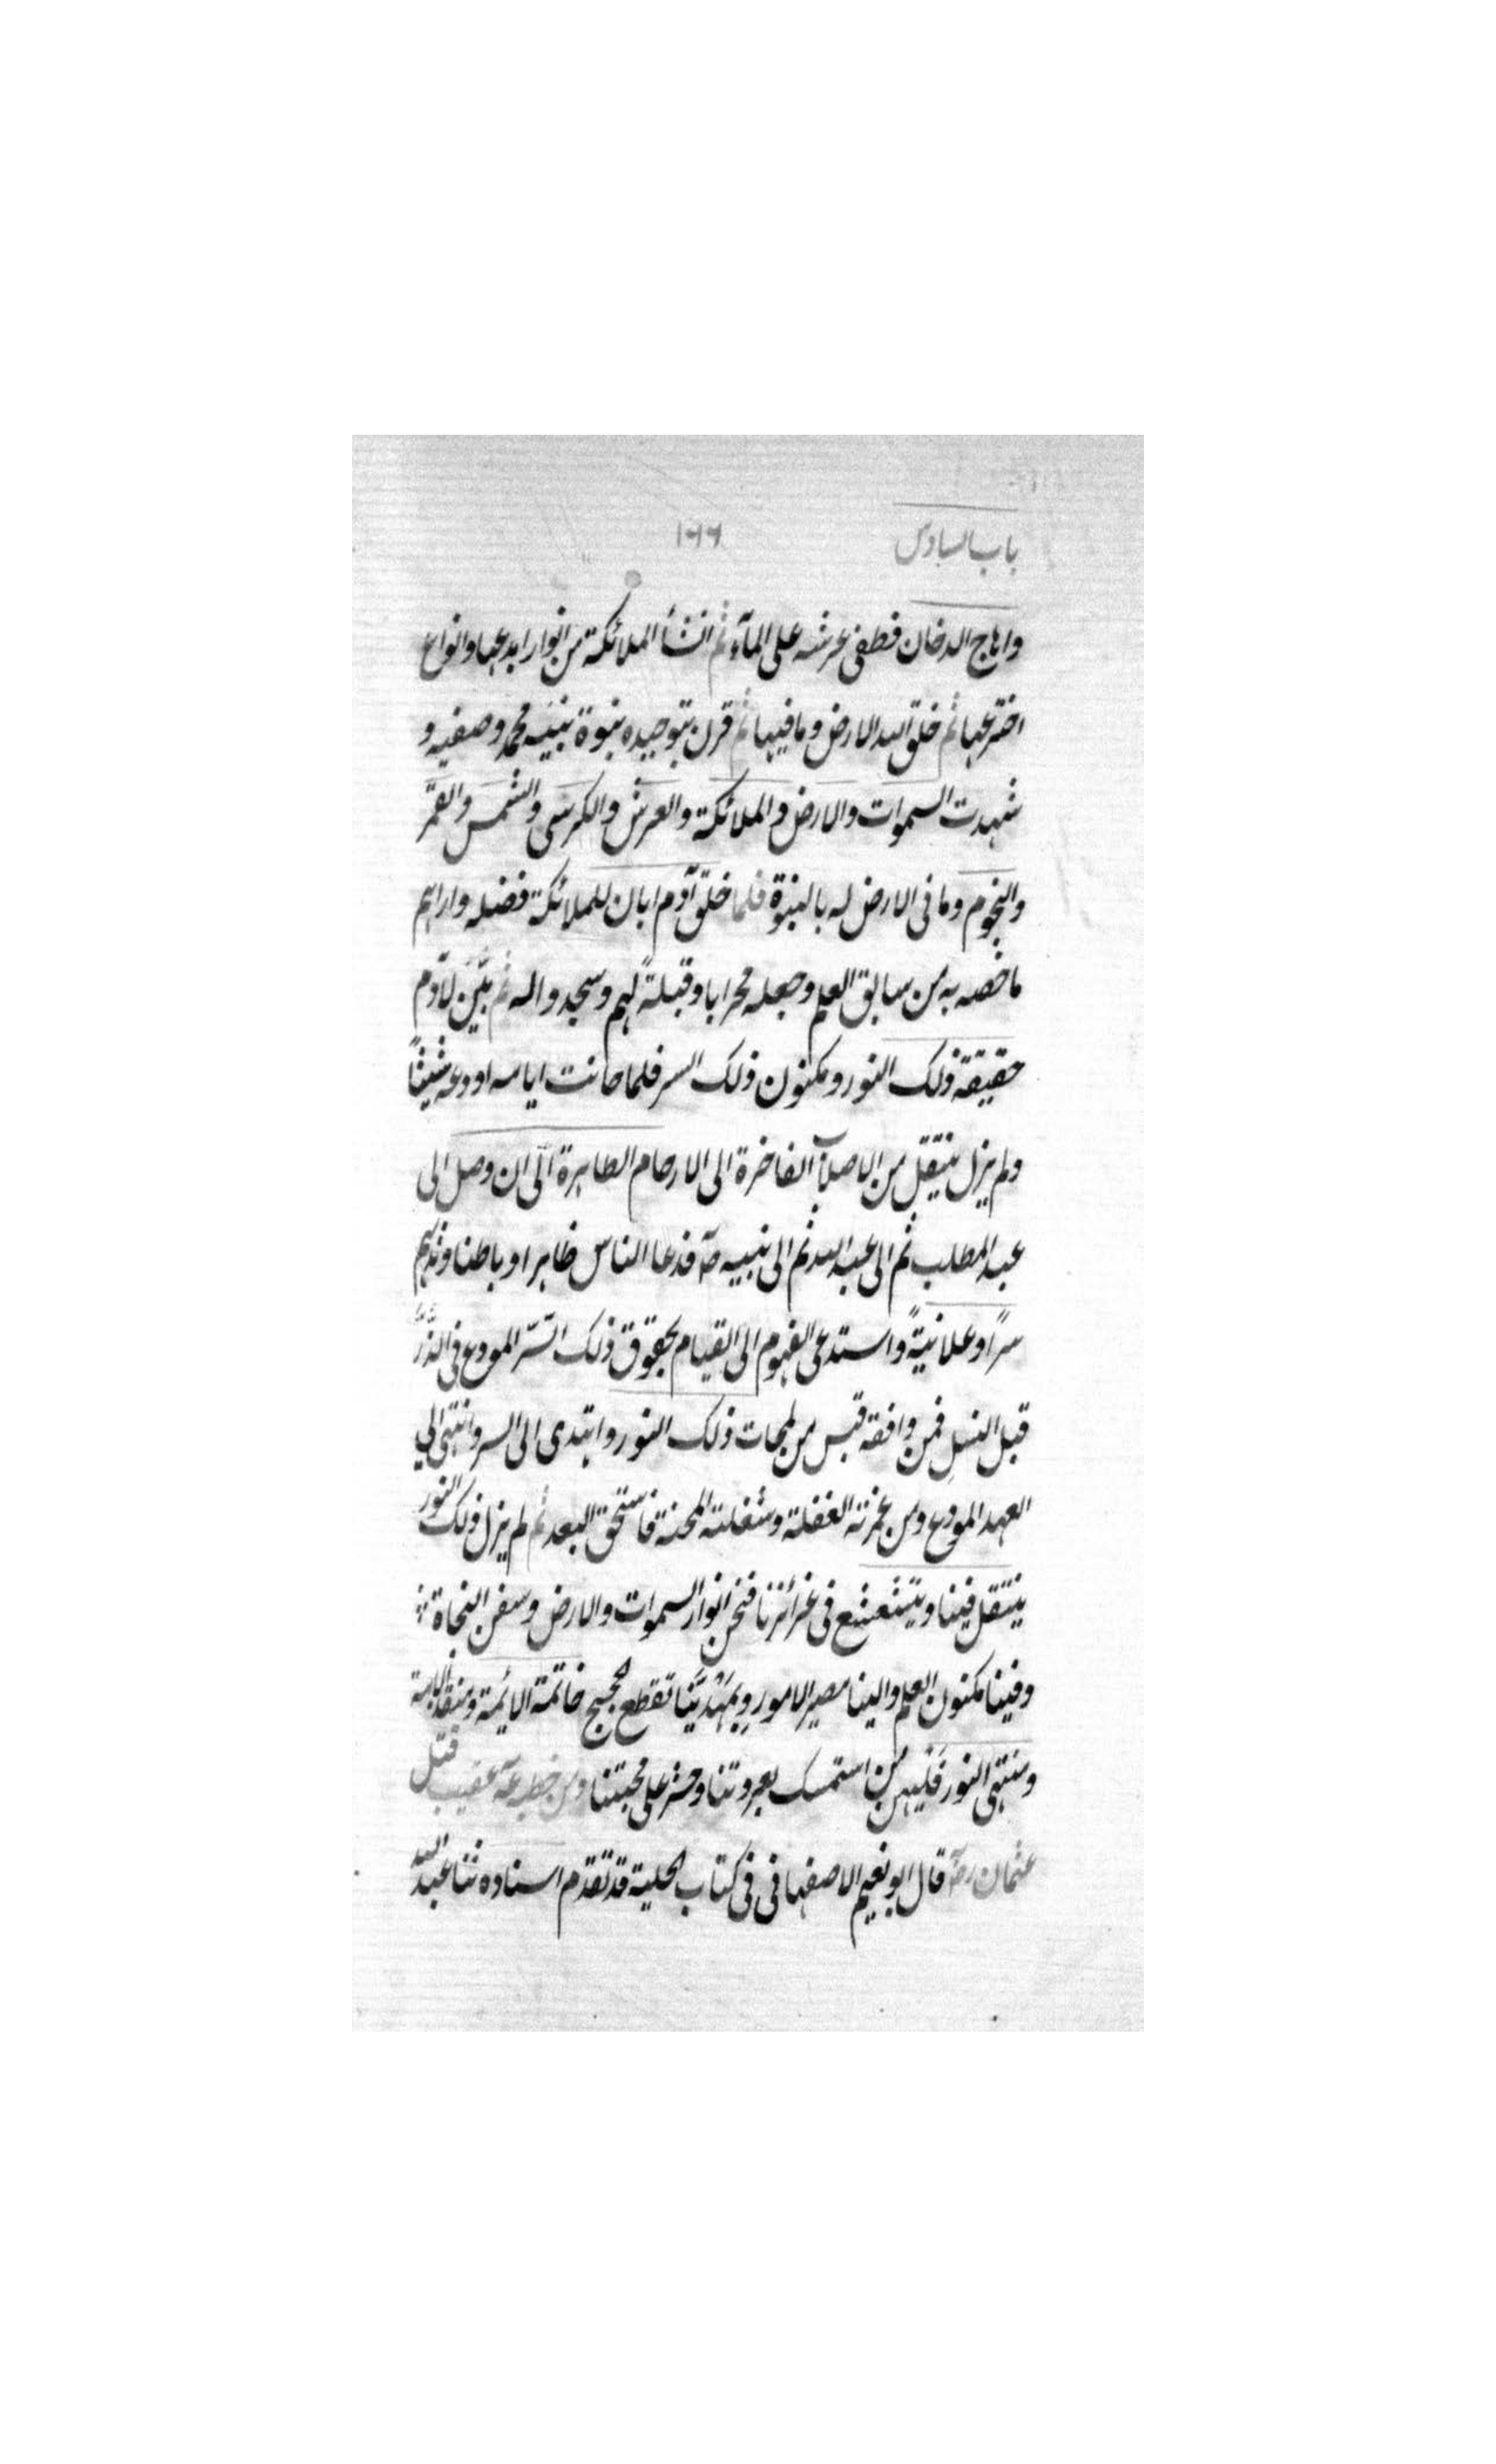 باب السادس ١٦٦
واهاج الدخان فطفى عرشه على المآء ثم انشأ الملائكة من انوار ابدعها وانواع
اخترعها ثم خلق الله الارض وما فيها ثم قرن بتوحيده بنبوة نبيه محمد وصفيه و
شهدت السموات والارض و الملائكة والعرش والكرسى والشمس والقمر
والنجوم وما فى الارض له بالنبوة فلما خلق آدم ابان للملائكة فضله واراهم
ما خصه به من سابق العلم وجعله محرابا وقبلةً لهم وسجدوا له ثم بيّن لآدم
حقيقة ذلك النور ومكنون ذلك السر فلما حانت ايامه اودعه شيثاً
ولم يزل ينتقل من الاصلاب الفاخرة الى الارحام الطاهرة الى ان وصل الى
عبد المطلب ثم الى عبد الله ثم الى نبيه صۤ فدعا الناس ظاهرا وباطنا وندبهم
سراً وعلانيةً واستدعى الفهوم الى القيام بحقوق ذلك السّر المودع فى الذَّر
قبل النسل فمن وافقه قبس من لمحات ذلك النور واهتدى الى السر وانتهى الى
العهد المودع ومن غمرته الغفلة وشغلته المحنة فاستحق البعد ثم لم يزل ذلك النور
ينتقل فينا ويتشعشع فى غرائزنا فنحن انوار السموات والارض وسفن النجاة
وفينا مكنون العلم والينا مصير الامور وبمهديّنا تقطع الحجج خاتمة الائمة ومنقذ الامة
ومنتهى النور فليهن من استمسك بعروتنا وحشر على محبتنا ومن خطبه عۤ عقيب قتل
عثمان رضۤ قال ابو نعيم الاصفهانى فى كتاب الحلية قد تقدم اسناده ثنا عبد الله